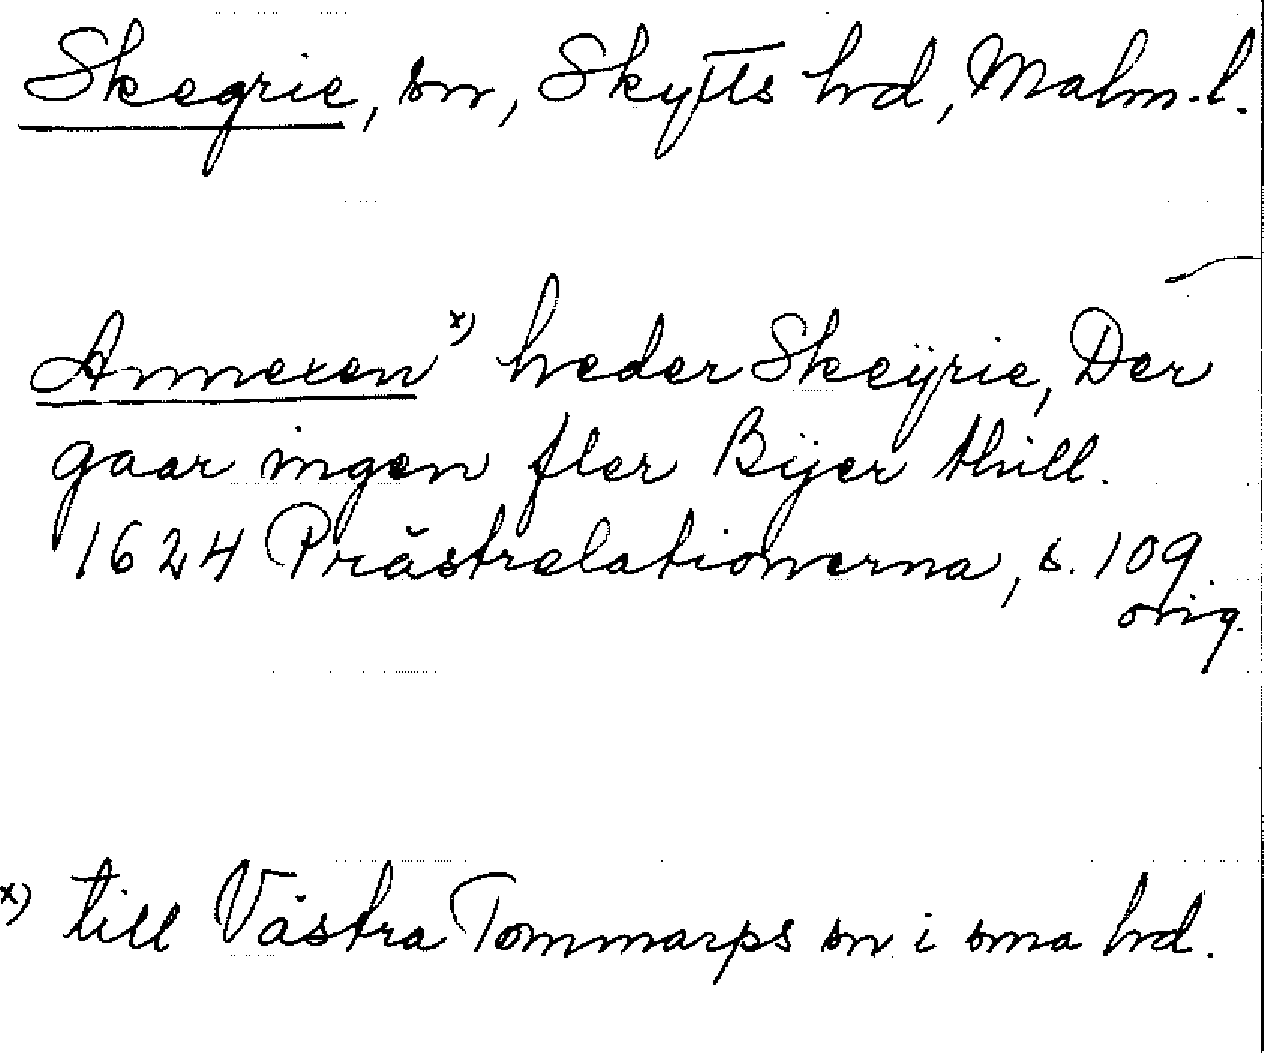 Skegrie, sn, Skytts hd, Malm. l.
Annexen x) heder Skeÿrie, Der
gaar ingen fler Bÿer thill.
1624 Prästrelationerna, s. 109.
orig.
x) till Västra Tommarps sn i sma hd.